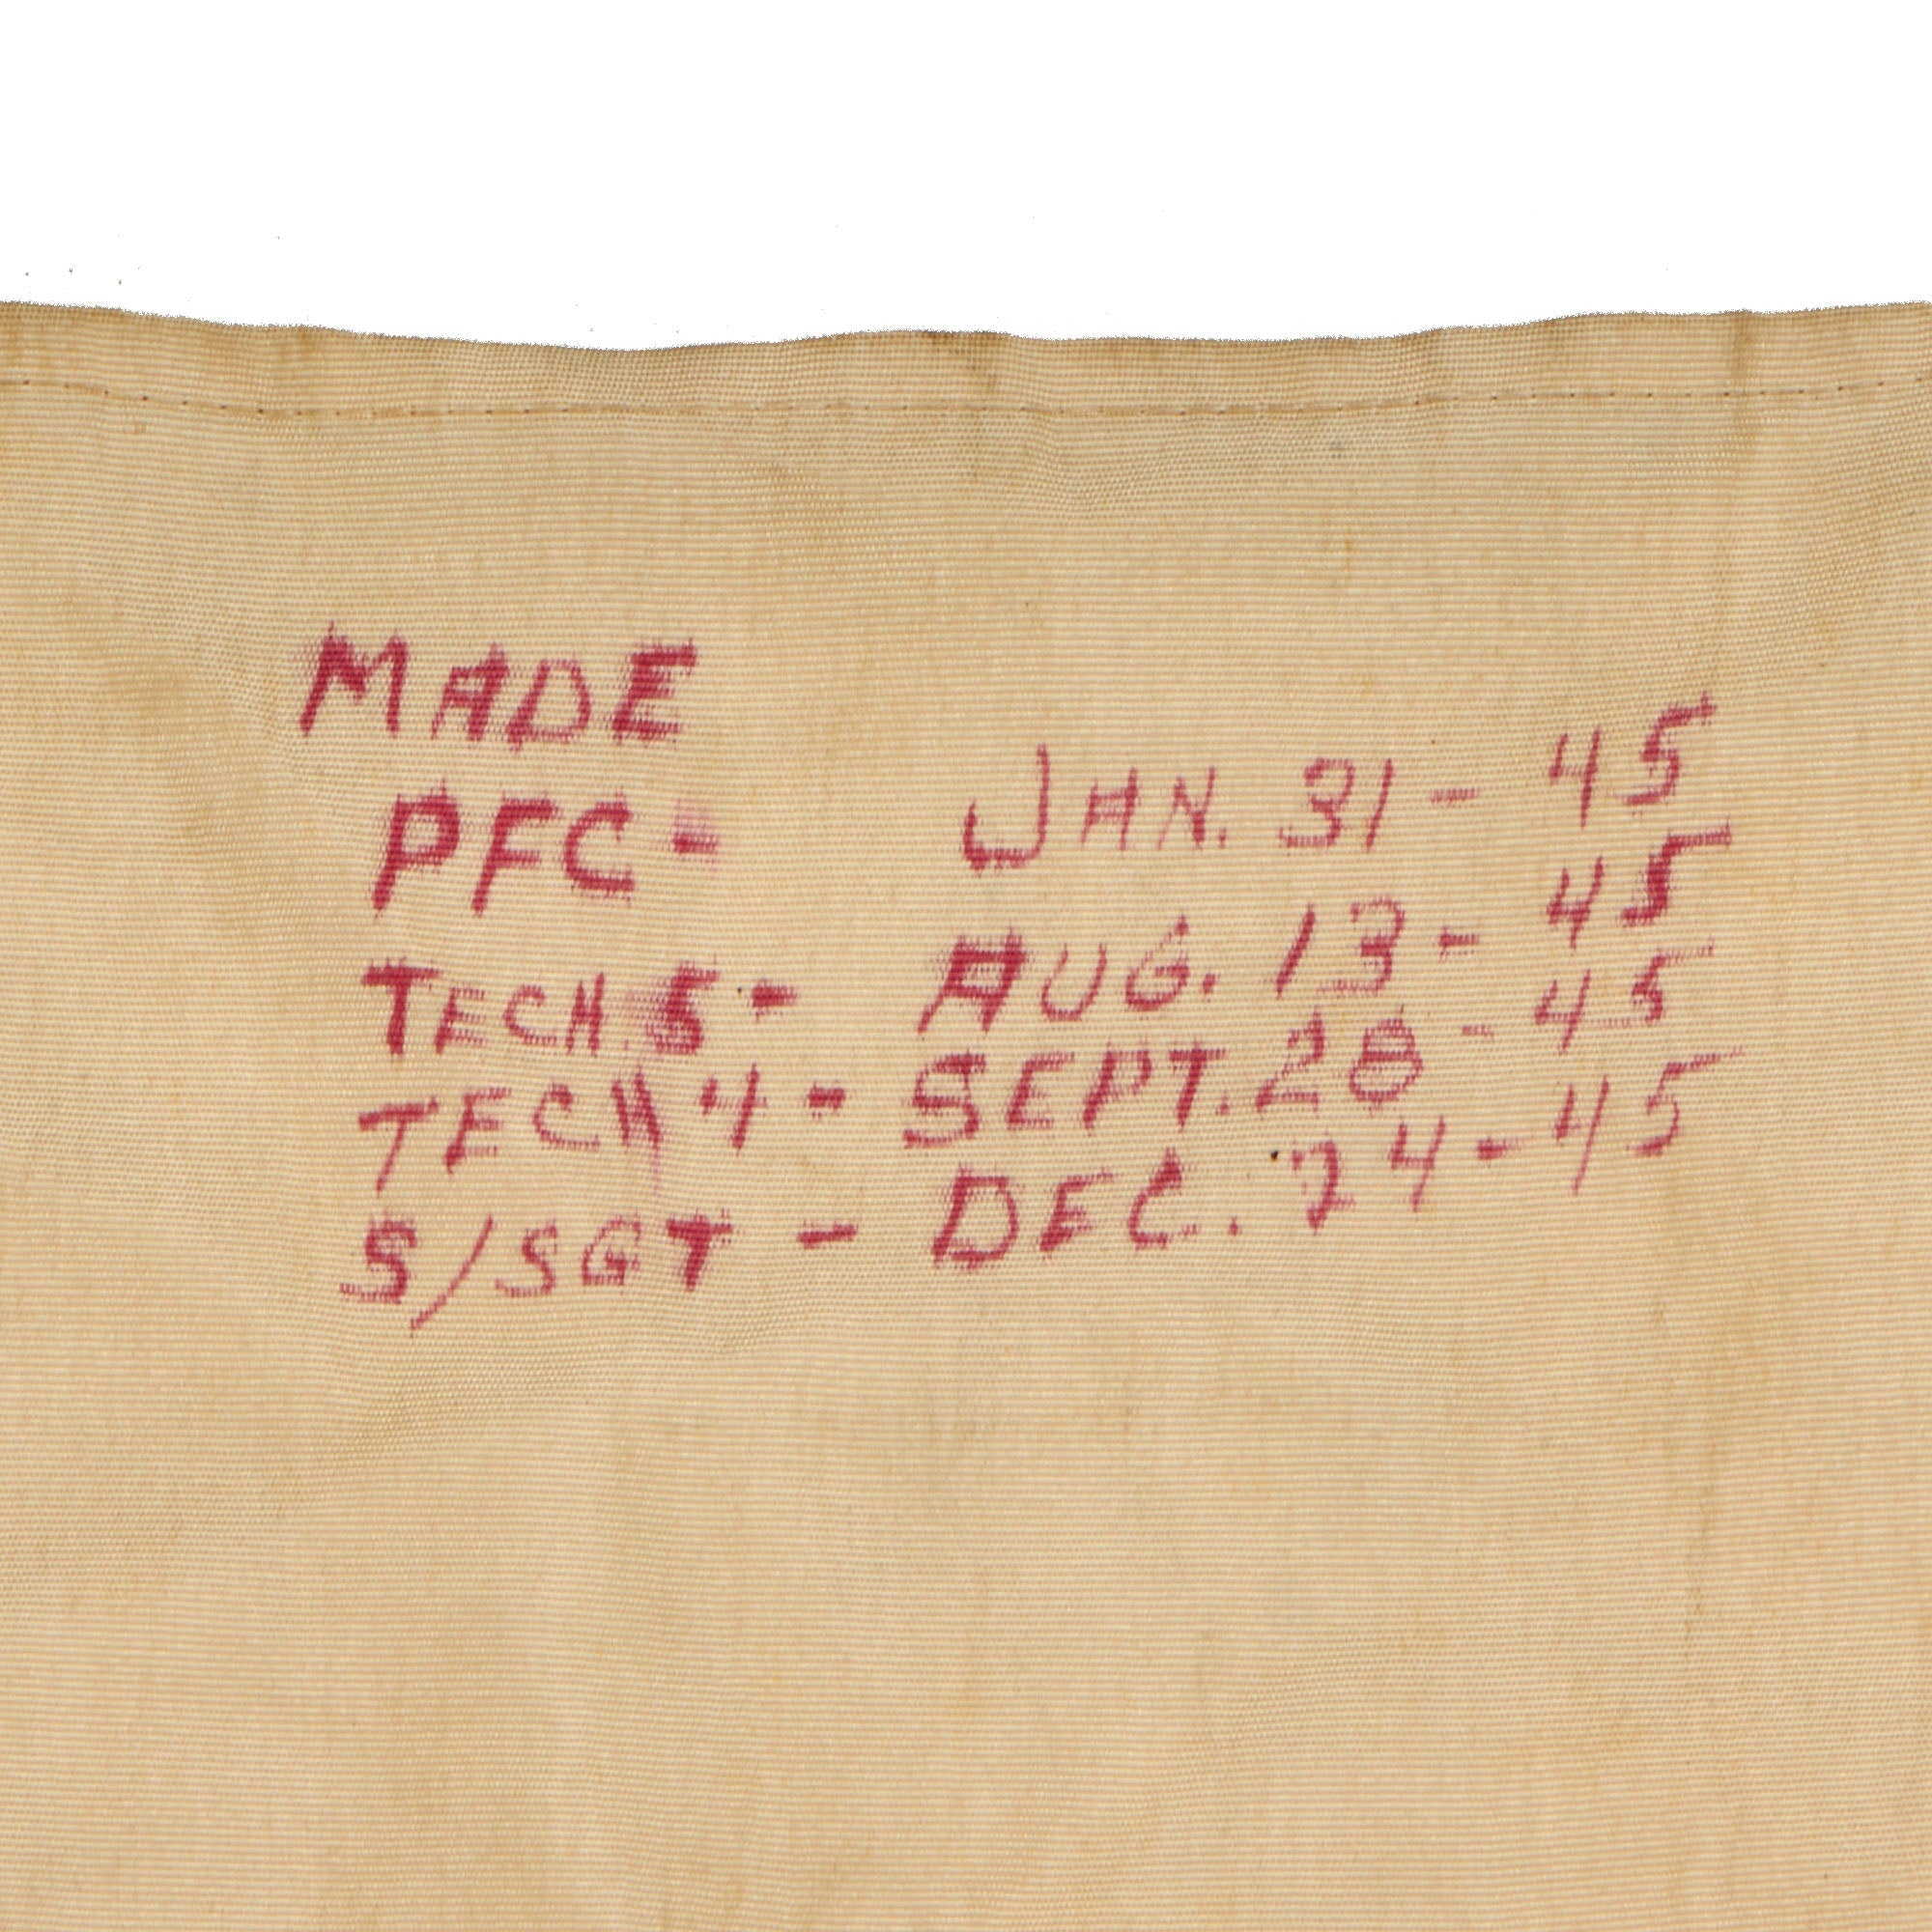 MADE
PFC - JAN. 31 - 45
TECH. 5 - AUG. 13 - 45
TECH 4 - SEPT. 28 - 45
S/SGT - DEC. 24 - 45